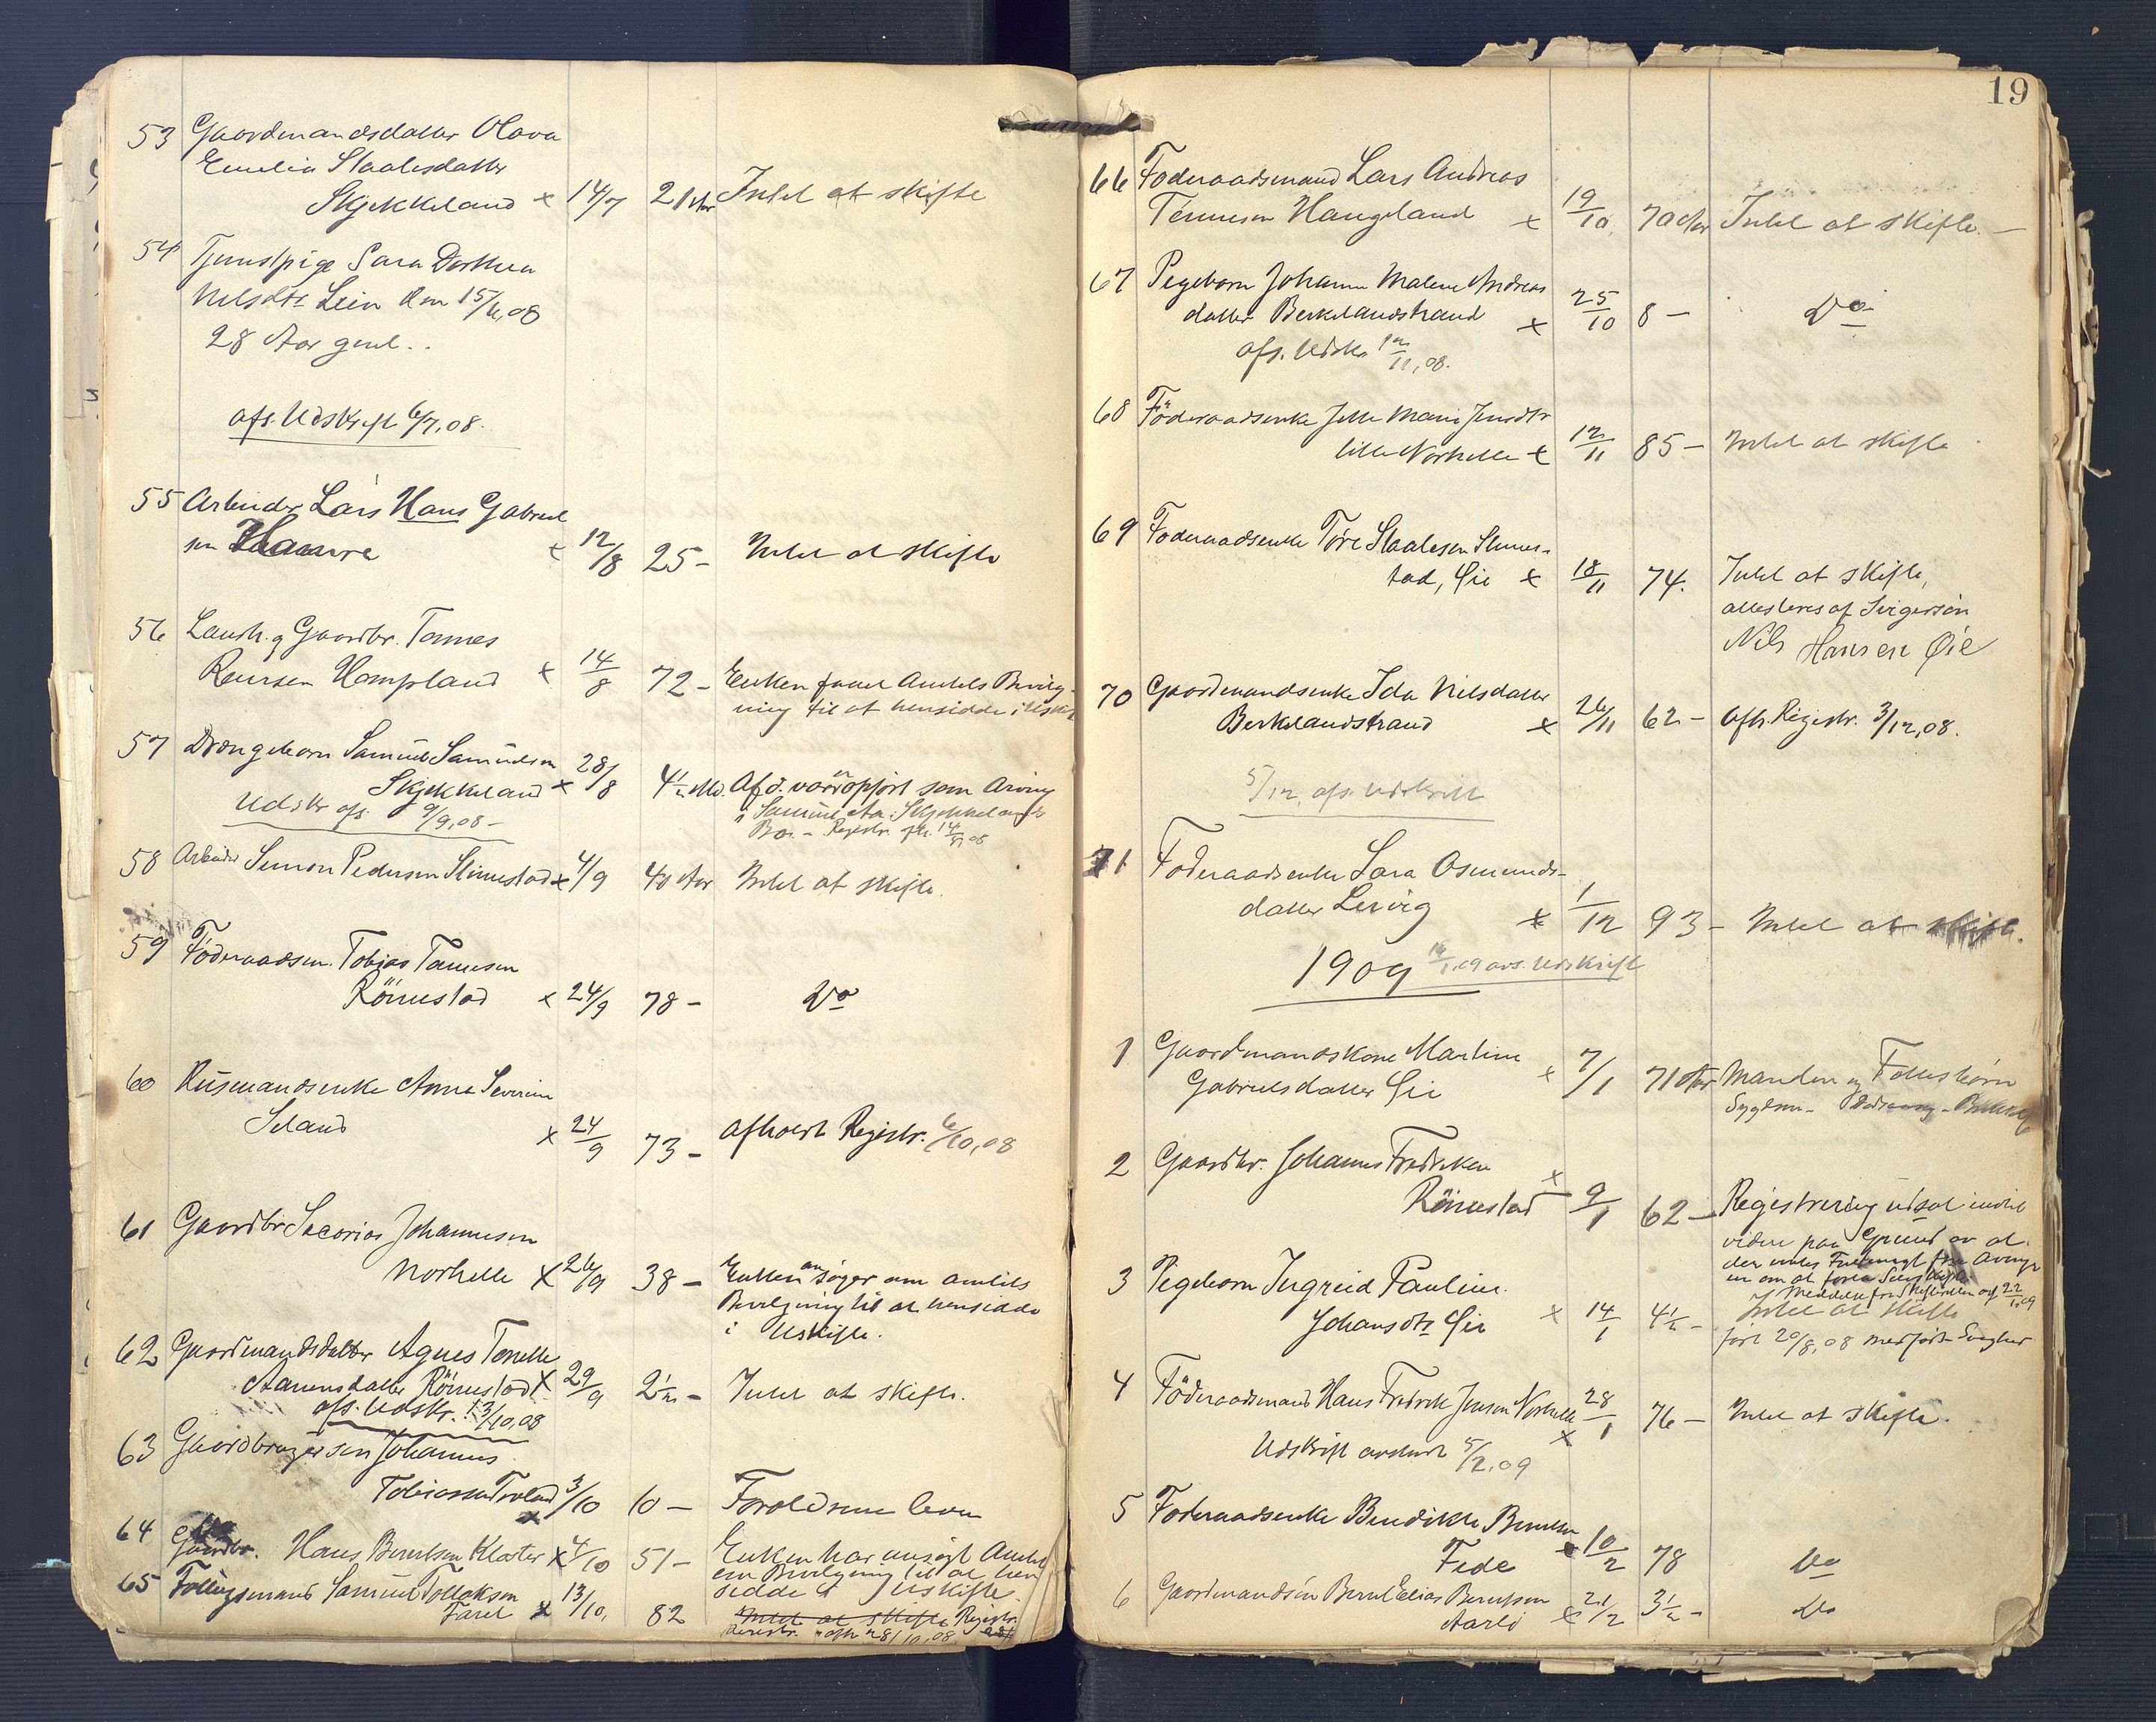 53 Gaardmandsdatter Olava
Emelia Staalesdatter
Skjekkeland x 14/7 21 Aar Intet at skifte
54 Tjenestpige Sara Dorthea
Nilsdtr Lein den 15/6,08
28 Aar gml..
afs. Udskrift 6/7,08.
55 Arbeider Lars Hans Gabriel
sen Hamre x 12/8 25 – Intet at skifte
56 Landh. g Gaardbr. Tønnes
Reiersen Hompland x 14/8 72 – Enken faaet Amtets Bevilg-
ning til at hensidde i Uskift
57 Drengebarn Samuel Samuelsen
Skjekkeland x 28/8 4½ Md. Afd. var opført som Arving
i Samuel Aa. Skjekkelands
Bo. – Registr. afh. 14/9 08
Udskr afs. 9/9,08 –
58 Arbeider Simon Pedersen Slimestad x 4/9 40 Aar Intet at skifte.
59 Föderaadsm. Tobias Tønnesen
Römestad x 24/9 78 – Do
60 Husmandsenke Anna Severine
Seland x 24/9 73 – afholdt Registr. 6/10,08
61 Gaardbr Sacarias Johannesen
Norhelle x 26/9 38 – Enken ansøger om amtets
Bevilgning til at hensidde
i Uskifte.
62 Gaardmandsdatter Agnes Tonette
Aanensdatter Römestad x 29/9 2½ – Intet at skifte.
afs. Udskr. 13/10,08
63 Gaardbrugersøn Johannes
Tobiassen Troland x 3/10 10 – Forældrene lever
64 Gaardbr. Hans Berntsen Kloster x 4/10 51 – Enken har ansøgt Amtet
om Bevilgning til at hen
sidde i Uskifte.
65 Fattigmand Samuel Tollaksen
x 13/10, 82 Intet at skifte Registr.
afh 28/10,08
19
66 Foderaadsmand Lars Andreas
Tønnesen Haugeland x 19/10, 70 Aar Intet at skifte. –
67 Pigebarn Johanne Malene Andreas
datter Berkelandstrand x 25/10 8 – Do
afs. Udskr. 12/11,08.
68 Föderaadsenke Jette Marie Jensdtr
lille Norhelle x 12/11 85 – Intet at skifte
69 Foderaadsenke Tore Staalesen Slimes-
tad, Øie x 18/11 74. Intet at skifte,
attesteres af Svigersøn
Nils Hansen Øie
70 Gaardmandsenke Ida Nilsdatter
Berkelandstrand x 26/11 62 – Afh. Registr. 3/12,08.
5/12, afs. Udskrift
71 Foderaadsenke Sara Osmunds-
datter Lervig x 1/12 93 – Intet at skifte.
1909 16/1,09 avs. Udskrift
1 Gaardmandskone Martine
Gabrielsdatter Øie x 7/1 71 Aar Manden og Fællesbørn
2 Gaardbr. Johannes Fredriksen
Römestad x 9/1 62 – Registrering udsat indtil
videre paa Grund av at
der ventes Fuldmagt fra Arving
er om at foreta Selvskifte
Meddelt fra Skifteretten af 22/1,09
3 Pigebarn Ingreid Pauline
Johansdtr Øie x 14/1 4½ – Intet at skifte
født 20/8,08
4 Föderaadsmand Hans Fredrik Jensen Norhelle x 28/1 76 – Intet at skifte.
Udskrift avsendt 5/2,09
5 Foderaadsenke Bendikte Berntsen
Fede x 10/2 78 Do
6 Gaardmandssøn Bernt Elias Berntsen
x 21/2 3½ – Do